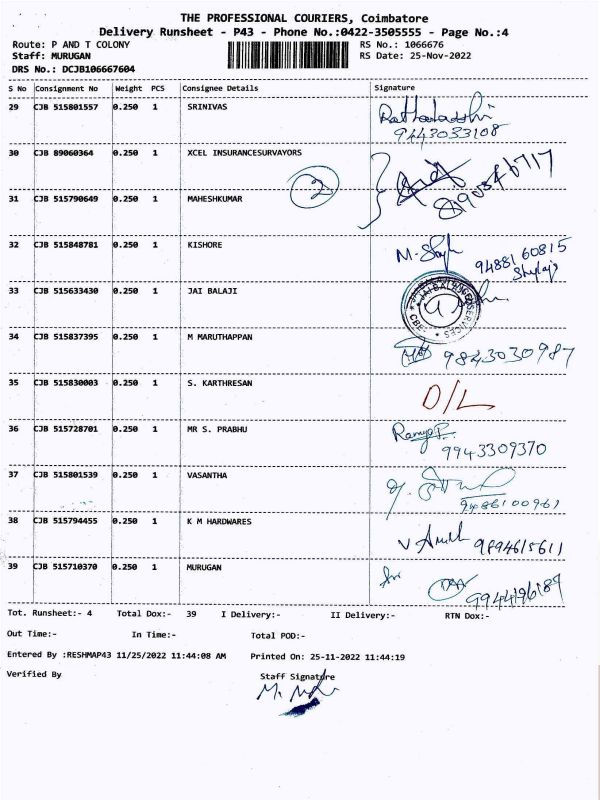 THE PROFESSIONAL COURIERS, Coimbatore
Delivery Runsheet - P43 - Phone No.:0422-3505555 - Page No.:4
Route: P AND T COLONY RS No.: 1066676
Staff: MURUGAN RS Date: 25-Nov-2022
DRS No.: DCJB106667604
S No Consignment No Weight PCS Consignee Details Signature
29 CJB 515801557 0.250 1 SRINIVAS
9443033108
30 CJB 89060364 0.250 1 XCEL INSURANCESURVAYORS
2
31 CJB 515790649 0.250 1 MAHESHKUMAR
32 CJB 515848781 0.250 1 KISHORE
9488160815
33 CJB 515633430 0.250 1 JAI BALAJI
34 CJB 515837395 0.250 1 M MARUTHAPPAN
9843030987
35 CJB 515830003 0.250 1 S. KARTHRESAN D/L
36 CJB 515728701 0.250 1 MR S. PRABHU Ramya P.
9943309370
37 CJB 515801539 0.250 1 VASANTHA
9486100961
38 CJB 515794455 0.250 1 K M HARDWARES
9894615611
39 CJB 515710370 0.250 1 MURUGAN
9944196189
Tot. Runsheet:- 4 Total Dox:- 39 I Delivery:- II Delivery:- RTN Dox:-
Out Time:- In Time:- Total POD:-
Entered By :RESHMAP43 11/25/2022 11:44:08 AM Printed On: 25-11-2022 11:44:19
Verified By Staff Signatre